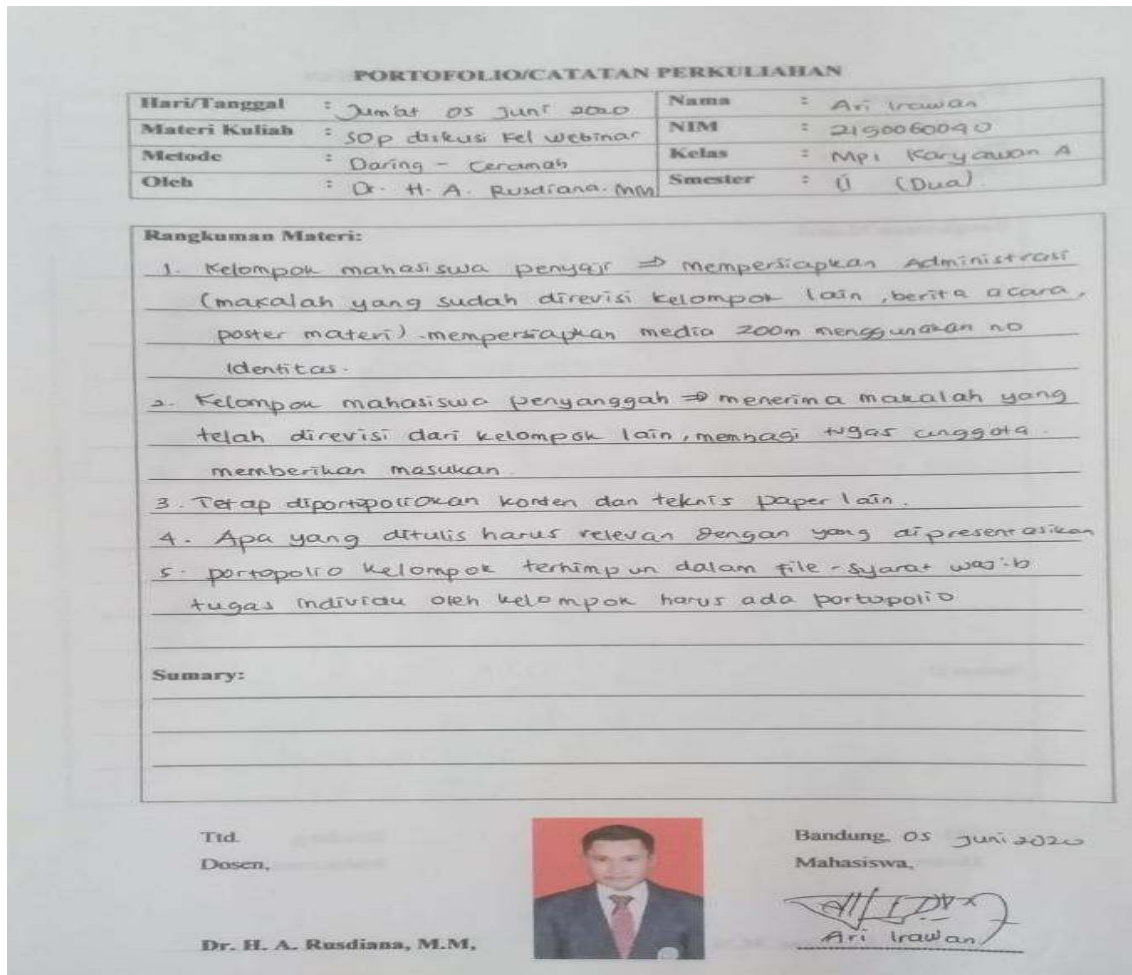 PORTOFOLIO/CATATAN PERKULIAHAN
Hari/Tanggal : Jum'at 05 Juni 2020 Nama : Ari Irawan
Materi Kuliah : SOP diskusi Kel webinar NIM : 2190060090
Metode : Daring - Ceramah Kelas : MPI Karyawan A
Oleh : Dr. H. A. Rusdiana. MM Smester : ii (Dua).
Rangkuman Materi:
1. Kelompok mahasiswa penyaji ⇒ mempersiapkan Administrasi
(makalah yang sudah direvisi kelompok lain, berita acara,
poster materi) -mempersiapkan media zoom menggunakan no
Identitas.
2. Kelompok mahasiswa penyanggah ⇒ menerima makalah yang
telah direvisi dari kelompok lain, membagi tugas anggota.
memberikan masukan.
3. Tetap diportopoliokan konten dan teknis paper lain.
4. Apa yang ditulis harus relevan dengan yang dipresentasikan
5. portopolio kelompok terhimpun dalam file - syarat wajib
tugas individu oleh kelompok harus ada portopolio
Sumary:
Ttd.
Dosen,
Dr. H. A. Rusdiana, M.M,
Bandung, 05 Juni 2020
Mahasiswa,
Ari Irawan